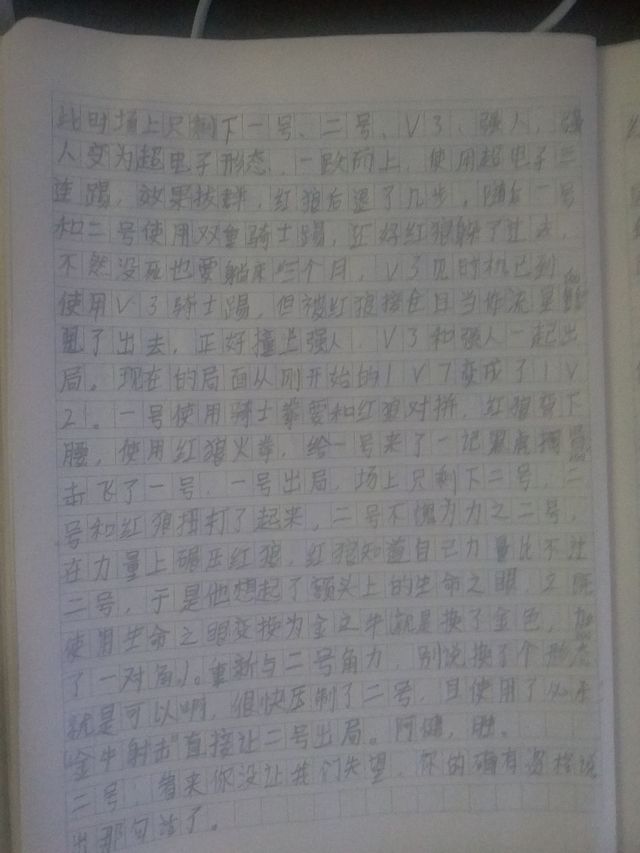 此时场上只剩下一号、二号、V3、强人，强
人变为超电子形态，一跃而上，使用超电子三
连踢，效果拔群，红狼后退了几步。随后一号
和二号使用双重骑士踢，还好红狼躲了过去，
不然没死也要躺床三个月，V3见时机已到，
使用V3骑士踢，但被红狼接住且当作流星
甩了出去，正好撞上强人，V3和强人一起出
局。现在的局面从刚开始的1V7变成了1V
2！。一号使用骑士拳要和红狼对拼，红狼弯下
腰，使用红狼火拳，给一号来了一记
击飞了一号，一号出局，场上只剩下二号，二
号和红狼扭打了起来，二号不愧为力之二号，
在力量上碾压红狼，红狼知道自己力量比不过
二号，于是他想起了额头上的生命之眼，
使用生命之眼变换为金之牛（就是换了金色，加
了一对角）。重新与二号角力，别说换了个形态
就是可以啊，很快压制了二号，且使用了必杀
“金牛射击”直接让二号出局。阿健，胜。
二号：看来你没让我们失望，你的确有资格说
出那句话了。